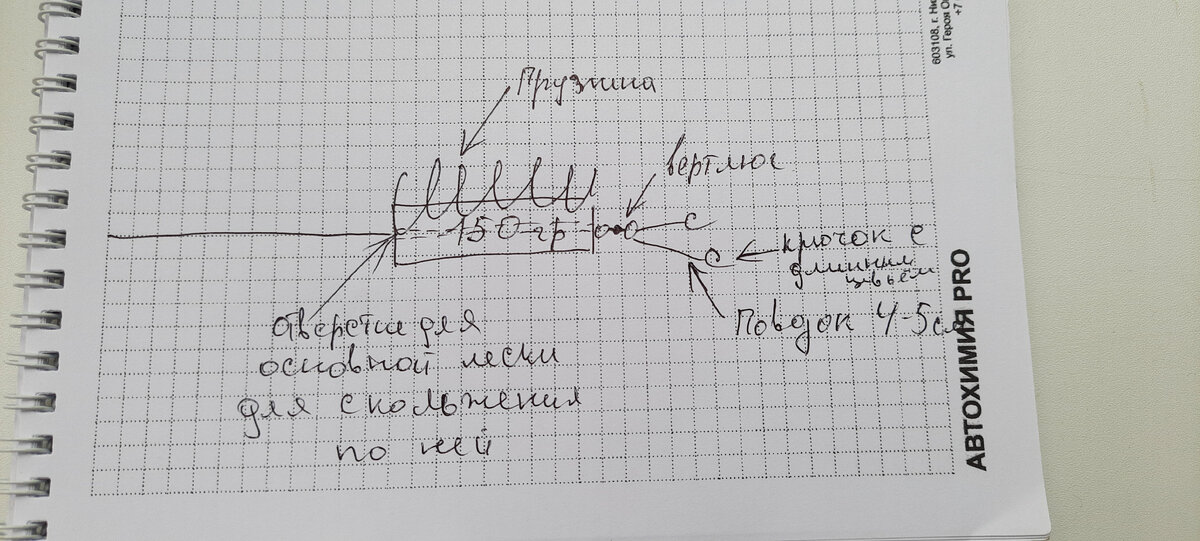 603108, г. Ни
ул. Героя О
+7
Пружина
вертлюг
150 гр
крючок с
длинным
цевьём
Поводок 4-5см
отверстие для
основной лески
для скольжения
по ней
АВТОХИМИЯ PRO